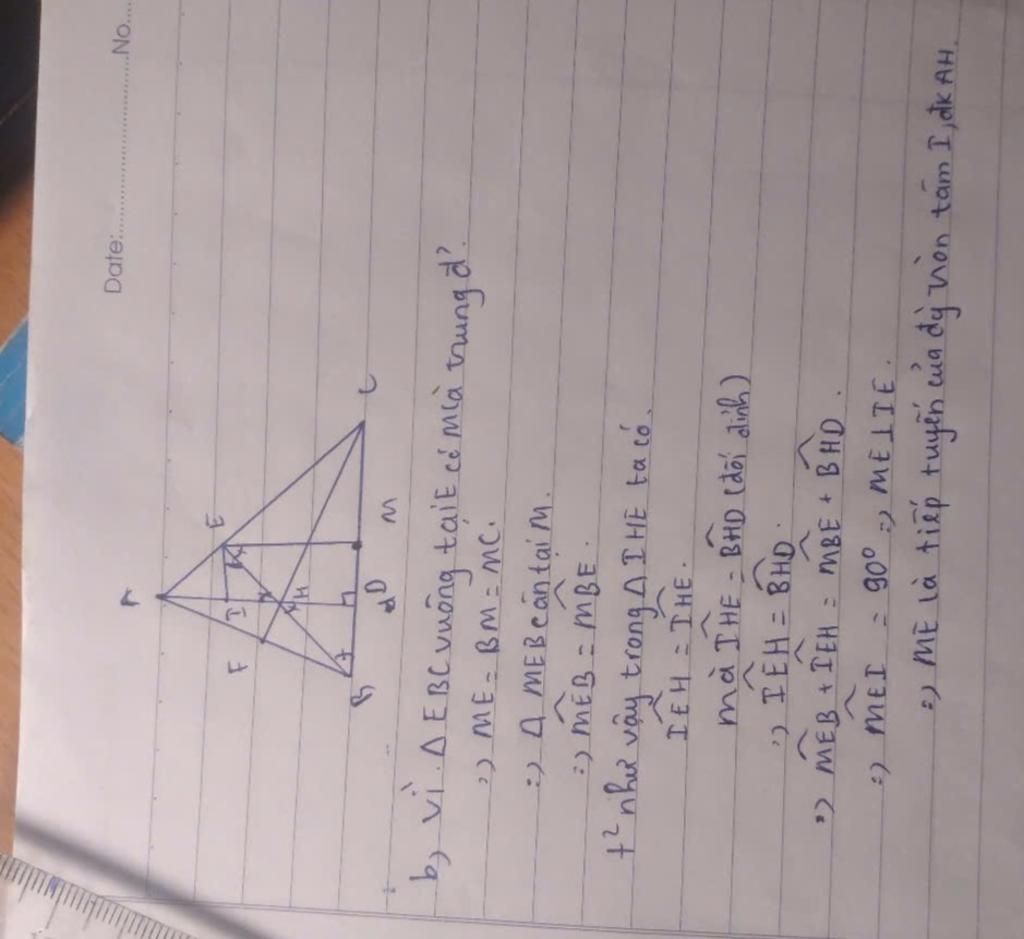 Date:..................No....
A
E
F
I
H
B
D
M
C
b) Vì. Δ EBC vuông tại E có M là trung đ'.
=) ME = BM = MC.
=) Δ MEB cân tại M.
=) \widehat{MEB} = \widehat{MBE}.
t² như vậy trong Δ IHE ta có.
\widehat{IEH} = \widehat{IHE}.
mà \widehat{IHE} = \widehat{BHD} (đối đỉnh)
=) \widehat{IEH} = \widehat{BHD}.
=) \widehat{MEB} + \widehat{IEH} = \widehat{MBE} + \widehat{BHD}.
=) \widehat{MEI} = 90° =) ME ⊥ IE.
=) ME là tiếp tuyến của đg tròn tâm I, đk AH.